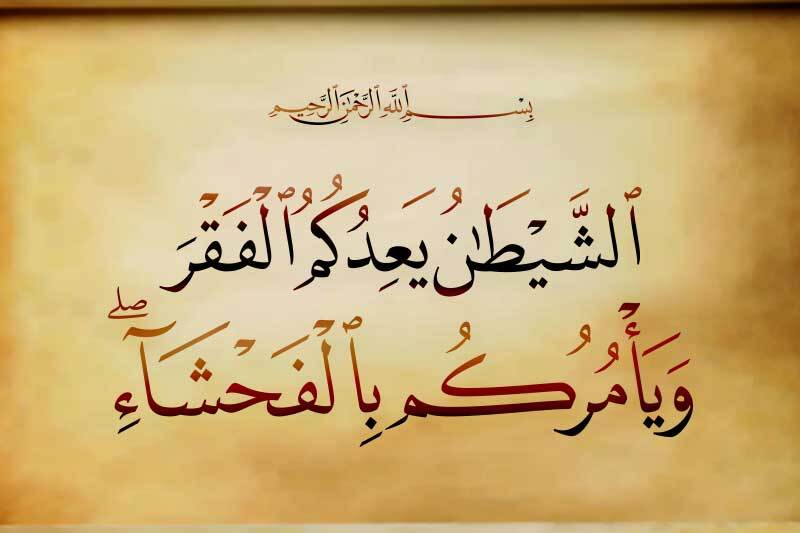 بِسْمِ ٱللَّهِ ٱلرَّحْمَٰنِ ٱلرَّحِيمِ
ٱلشَّيْطَٰنُ يَعِدُكُمُ ٱلْفَقْرَ
وَيَأْمُرُكُم بِٱلْفَحْشَآءِ ۖ